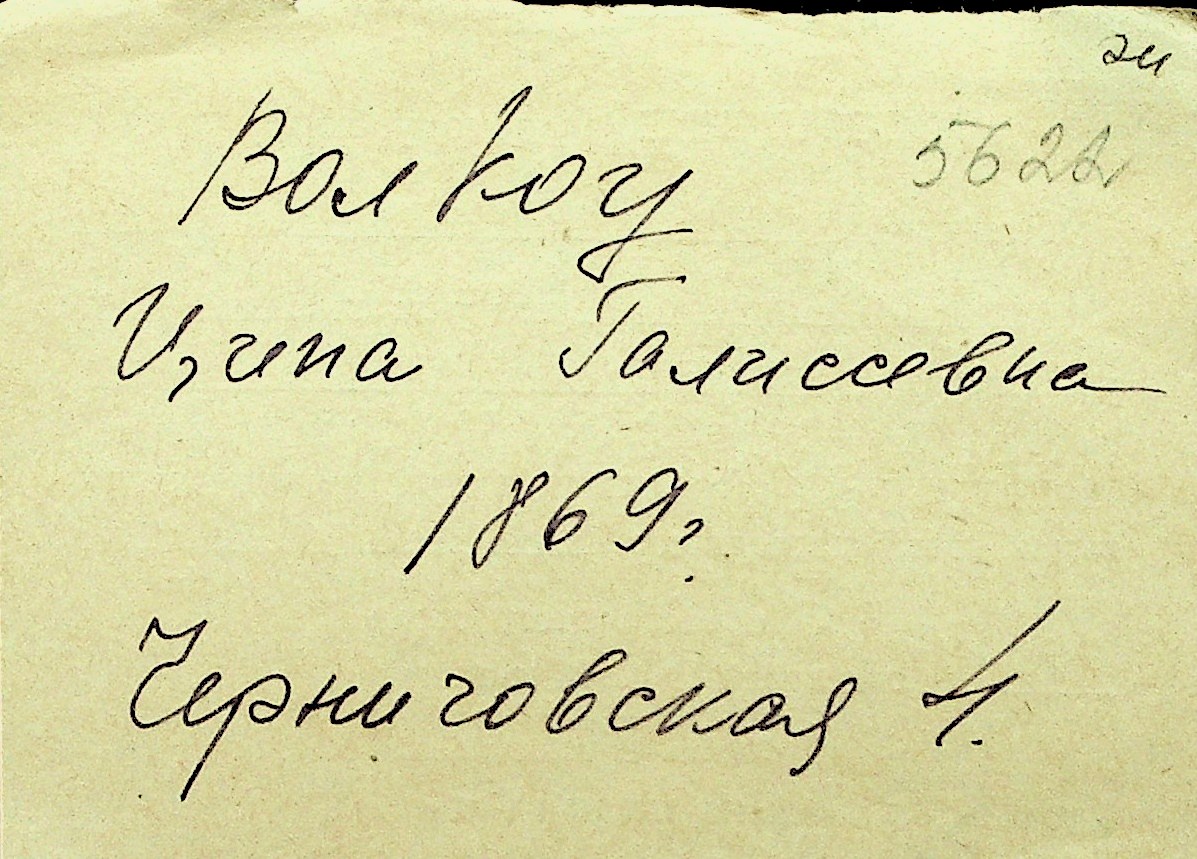 эи
5622
Волкоц
Ципа Галиссевна
1869г.
Черниговская 4.